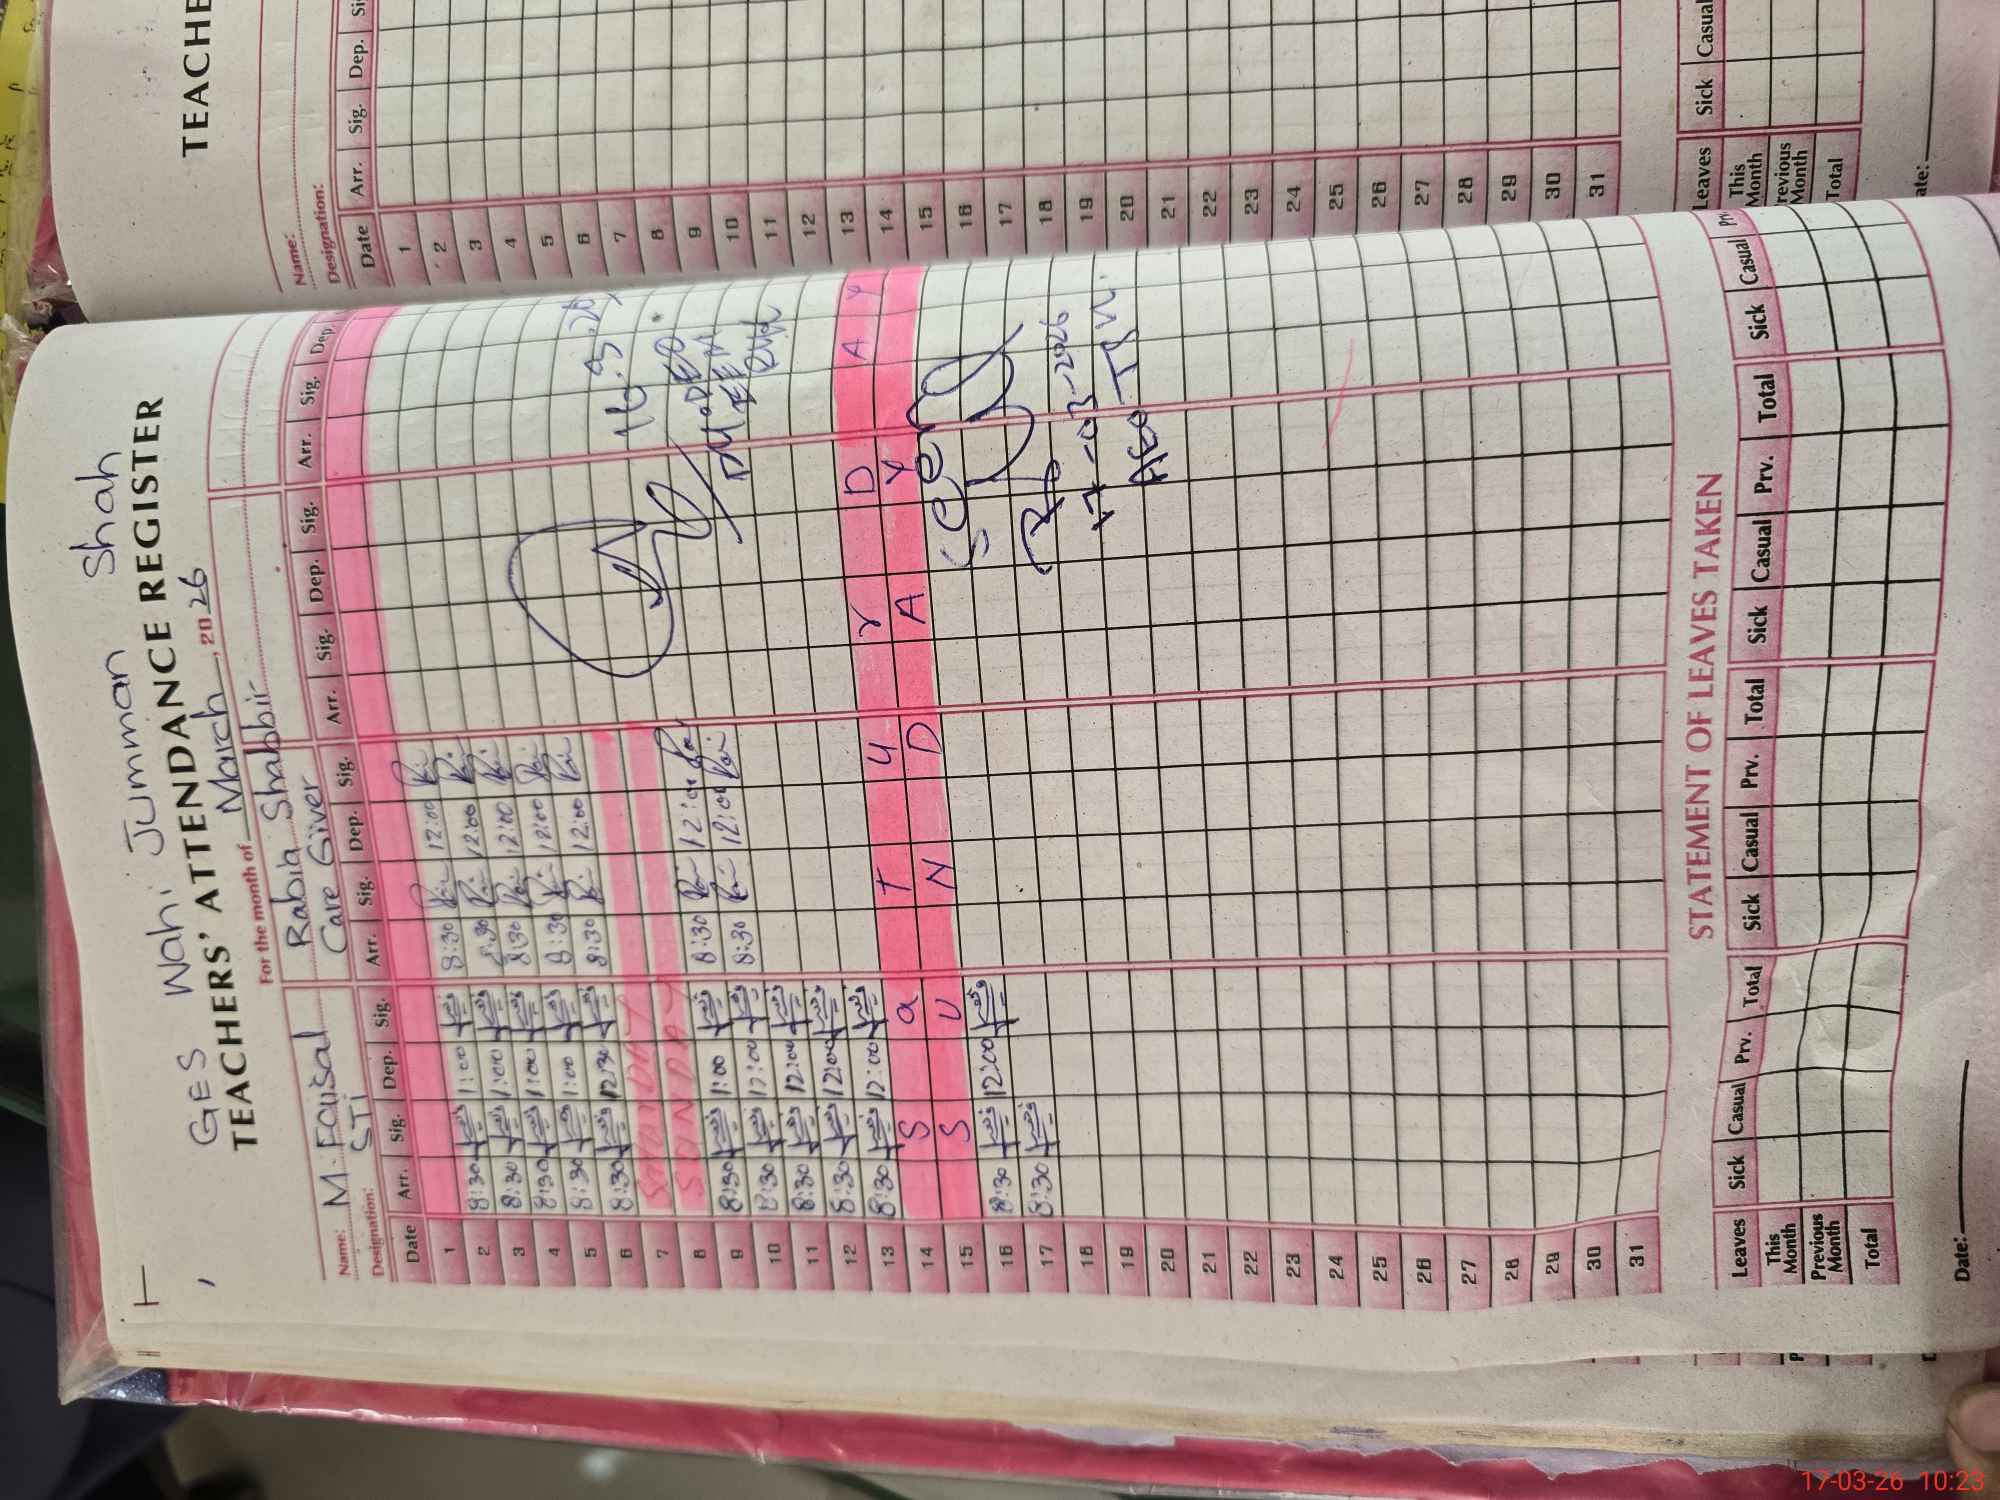 GES Wahi Jumman Shah
TEACHERS' ATTENDANCE REGISTER
For the month of March, 2026
Name: M. Faisal Rabia Shabbir
Designation: STI Care Giver
Date Arr. Sig. Dep. Sig. Arr. Sig. Dep. Sig. Arr. Sig. Dep. Sig. Arr. Sig. Dep.
1 8:30 12:00
2 8:30 1:00 8:30 12:00
3 8:30 1:00 8:30 12:00
4 8:30 1:00 8:30 12:00
5 8:30 1:00 8:30 12:00
6 8:30 12:30
7 SATURDAY
8 SUNDAY
9 8:30 1:00 8:30 12:00
10 8:30 12:00 8:30 12:00
11 8:30 12:00
12 8:30 12:00
13 8:30 12:00
14 S a T U r D A Y
15 S U N D A Y
16 8:30 12:00
17 8:30
18
19
20
21
22
23
24
25
26
27
28
29
30
31
16.3.26
Seen
17-03-2026
STATEMENT OF LEAVES TAKEN
Leaves Sick Casual Prv. Total Sick Casual Prv. Total Sick Casual Prv. Total Sick Casual Prv.
This Month
Previous Month
Total
Date:
TEACHE
Name:
Designation:
Date Arr. Sig. Dep.
1
2
3
4
5
6
7
8
9
10
11
12
13
14
15
16
17
18
19
20
21
22
23
24
25
26
27
28
29
30
31
Leaves Sick Casual
This Month
revious Month
Total
ate:
17-03-26 10:23